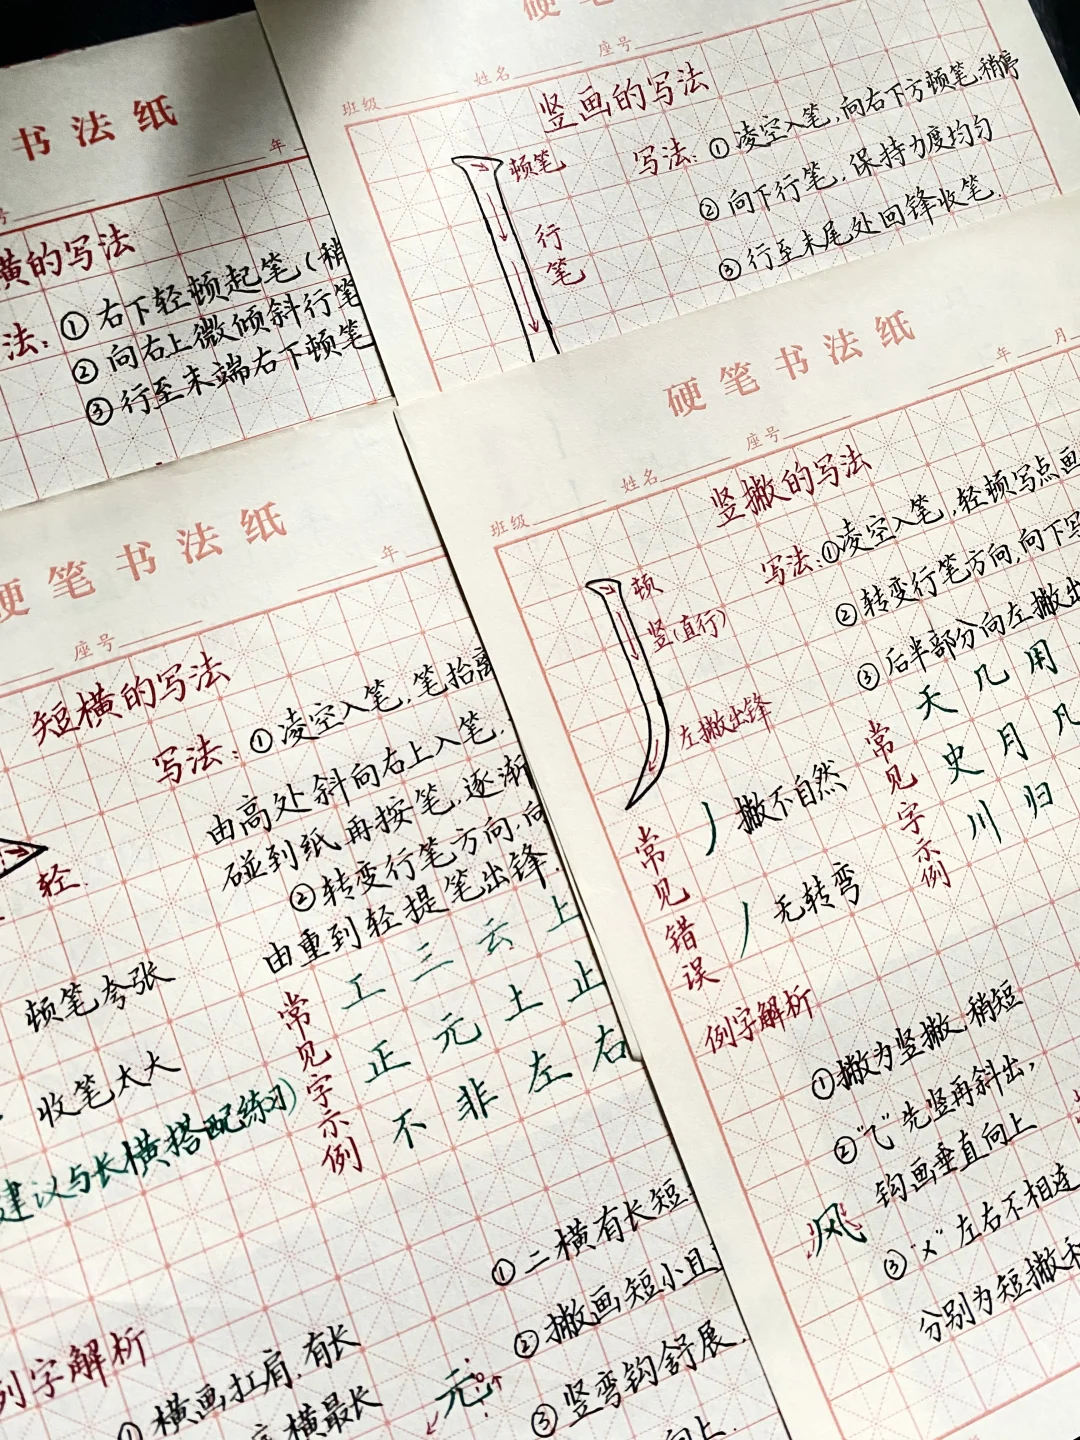 书法纸
年
号
横的写法
法：①右下轻顿起笔（稍
②向右上微倾斜行笔
③行至末端右下顿笔
硬笔
班级 姓名 座号
竖画的写法
顿笔
行笔
写法：①凌空入笔，向右下方顿笔，稍停
②向下行笔，保持力度均匀
③行至末尾处回锋收笔.
硬笔书法纸
座号 年
短横的写法
写法：①凌空入笔，笔抬离
由高处斜向右上入笔.
碰到纸再按笔，逐渐
②转变行笔方向，向
由重到轻提笔出锋.
轻.
顿笔夸张
收笔太大
建议与长横搭配练习)
常见字示例
工三云上
正元土止
不非左右
列字解析
①横画扛肩.有长
横最长
元
①二横有长短
②撇画短小且
③竖弯钩舒展.
向上.
硬笔书法纸
班级 姓名 座号 年 月
竖撇的写法
顿
竖(直行)
左撇出锋
写法：①凌空入笔，轻顿写点画
②转变行笔方向，向下写
③后半部分向左撇出
常见字示例
天几用
史月凡
川归
常见错误
丿撇不自然
丿无转弯
例字解析
风
①撇为竖撇，稍短
②“⺄”先竖再斜出，
钩画垂直向上
③“㐅”左右不相连
分别为短撇和